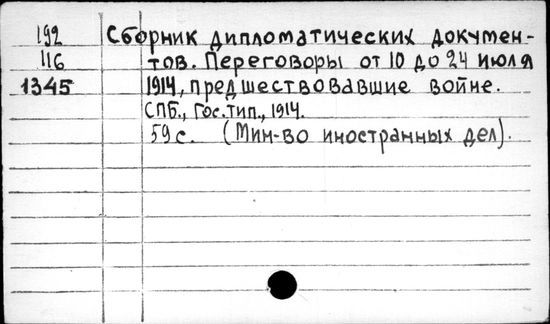 192 Сборник дипломатических докумен-
116 тов. Переговоры от 10 до 24 июля
1345 1914, предшествовавшие войне.
СПБ., Гос. тип., 1914.
59 с. (Мин-во иностранных дел).